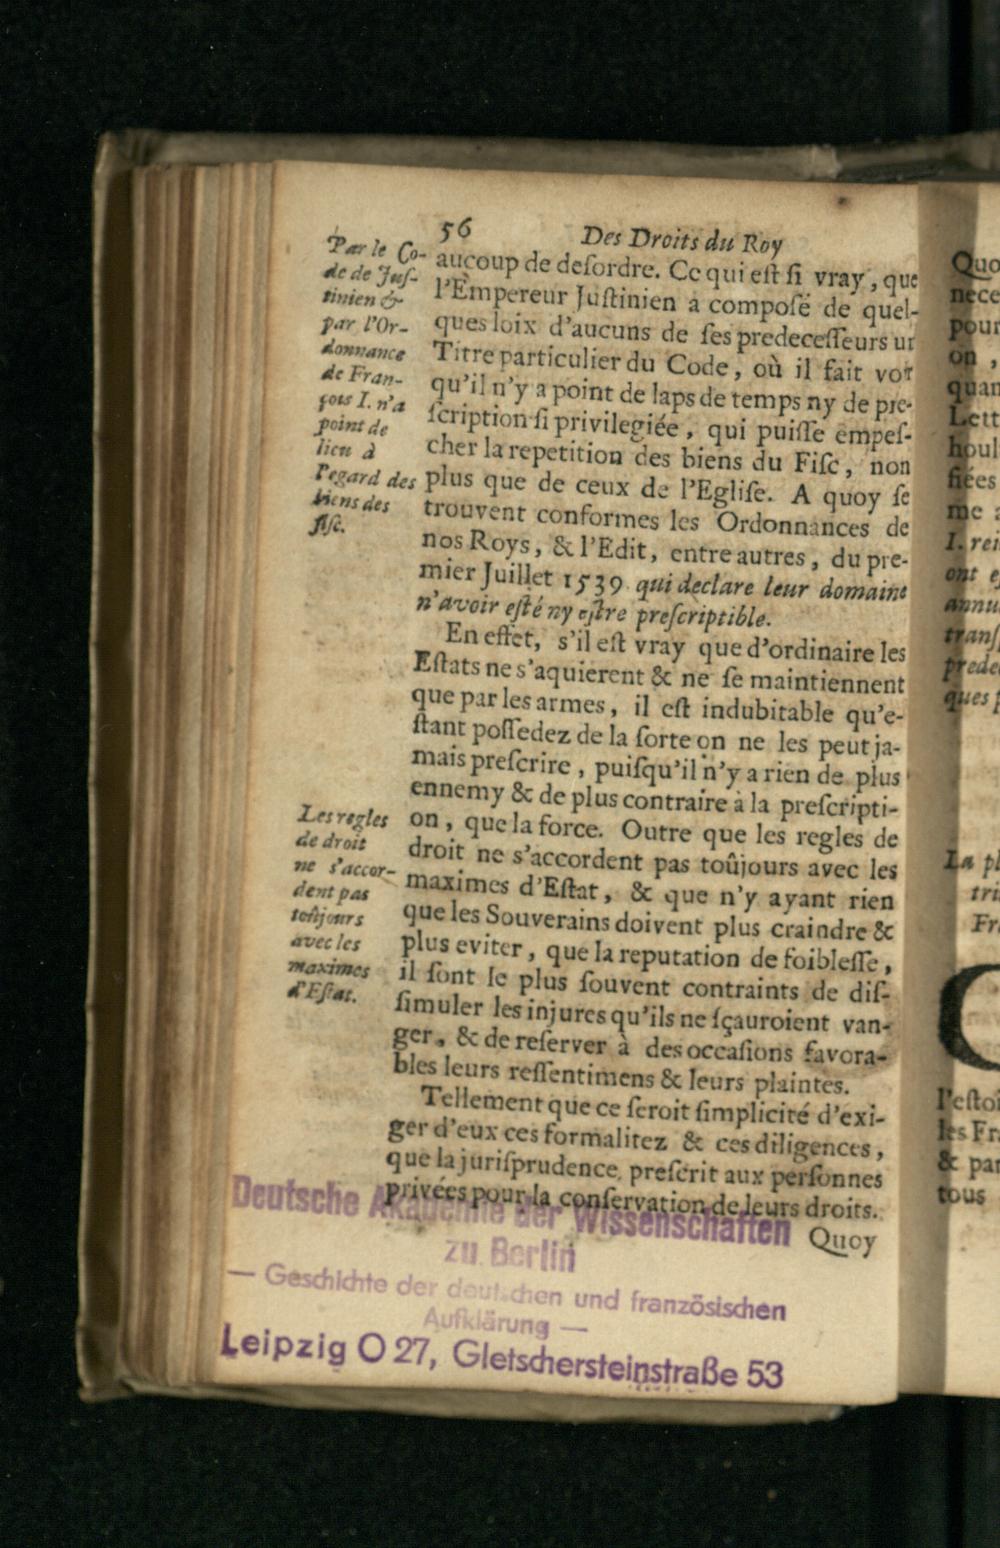 56 Des Droits du Roy
Par le Co-
de de Juſ-
tinien &
par l'Or-
donnance
de Fran-
çois I. n'a
point de
lieu à
l'egard des
biens des
fiſc.
aucoup de deſordre. Ce qui eſt ſi vray, que
l'Empereur Juſtinien a compoſé de quel-
ques loix d'aucuns de ſes predeceſſeurs un
Titre particulier du Code, où il fait voir
qu'il n'y a point de laps de temps ny de pre-
ſcription ſi privilegiée, qui puiſſe empeſ-
cher la repetition des biens du Fiſc, non
plus que de ceux de l'Egliſe. A quoy ſe
trouvent conformes les Ordonnances de
nos Roys, & l'Edit, entre autres, du pre-
mier Juillet 1539 qui declare leur domaine
n'avoir eſté ny eſtre preſcriptible.
En effet, s'il eſt vray que d'ordinaire les
Eſtats ne s'aquierent & ne ſe maintiennent
que par les armes, il eſt indubitable qu'e-
ſtant poſſedez de la ſorte on ne les peut ja-
mais preſcrire, puiſqu'il n'y a rien de plus
ennemy & de plus contraire à la preſcripti-
on, que la force. Outre que les regles de
droit ne s'accordent pas toûjours avec les
maximes d'Eſtat, & que n'y ayant rien
que les Souverains doivent plus craindre &
plus eviter, que la reputation de foibleſſe,
il ſont le plus ſouvent contraints de diſ-
ſimuler les injures qu'ils ne ſçauroient van-
ger, & de reſerver à des occaſions favora-
bles leurs reſſentimens & leurs plaintes.
Les regles
de droit
ne s'accor-
dent pas
toûjours
avec les
maximes
d'Eſtat.
Tellement que ce ſeroit ſimplicité d'exi-
ger d'eux ces formalitez & ces diligences,
que la juriſprudence preſcrit aux perſonnes
privées pour la conſervation de leurs droits.
Quoy
Deutsche Akademie der Wissenschaften
zu Berlin
— Geschichte der deutschen und französischen
Aufklärung —
Leipzig O 27, Gletschersteinstraße 53
Quo
nece
pour
on,
quan
Lett
houl
fiées
me a
I. rei
ont e
annu
tranſ
prede
ques p
La pl
tri
Fr
l'eſtoi
les Fra
& par
tous